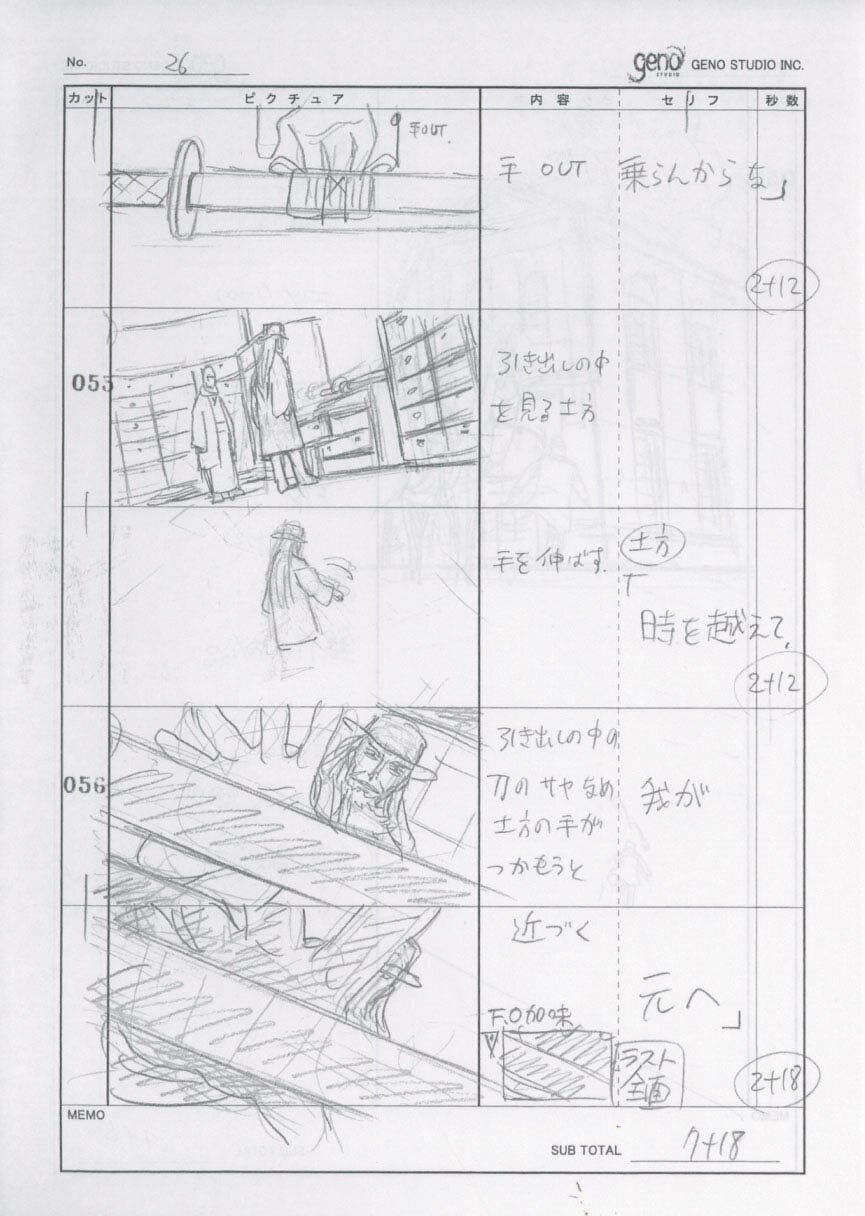 No. 26
geno STUDIO GENO STUDIO INC.
カット ピクチュア 内容 セリフ 秒数
手OUT.
手 OUT
乗らんからな」
2+12
053
引き出しの中
を見る土方
手を伸ばす.
土方
「
時を越えて、
2+12
056
引き出しの中の
刀のサヤなめ
土方の手が
つかもうと
我が
近づく
元へ」
F.O加味
ラスト
全画
2+18
MEMO
SUB TOTAL 7+18